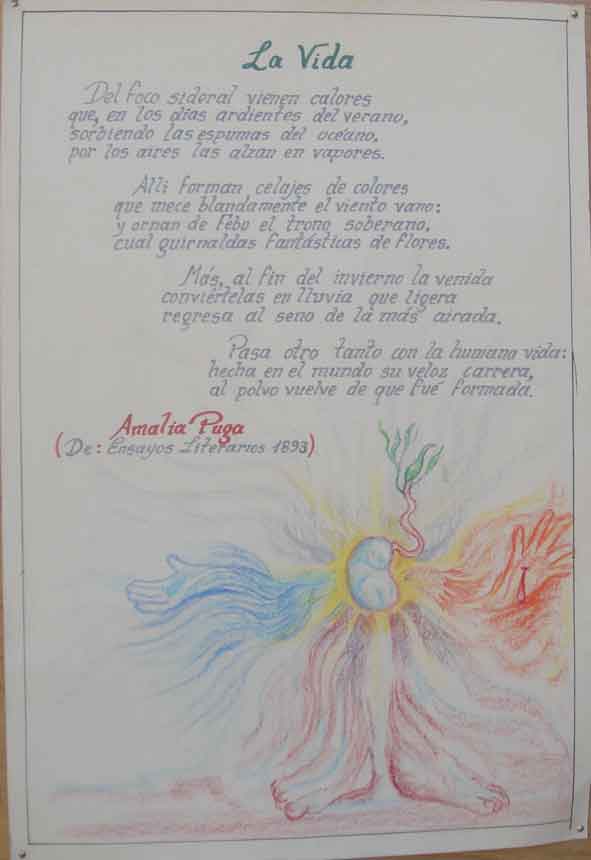 La Vida
Del foco sideral vienen calores
que, en los días ardientes del verano,
sorbiendo las espumas del océano,
por los aires las alzan en vapores.
Alli forman celajes de colores
que mece blandamente el viento vano;
y ornan de febo el trono soberano,
cual guirnaldas fantásticas de flores.
Más, al fin del invierno la venida
conviértelas en lluvia que ligera
regresa al seno de la más airada.
Pasa otro tanto con la humana vida:
hecha en el mundo su veloz carrera,
al polvo vuelve de que fué formada.
Amalia Puga
(De: Ensayos Literarios 1893)